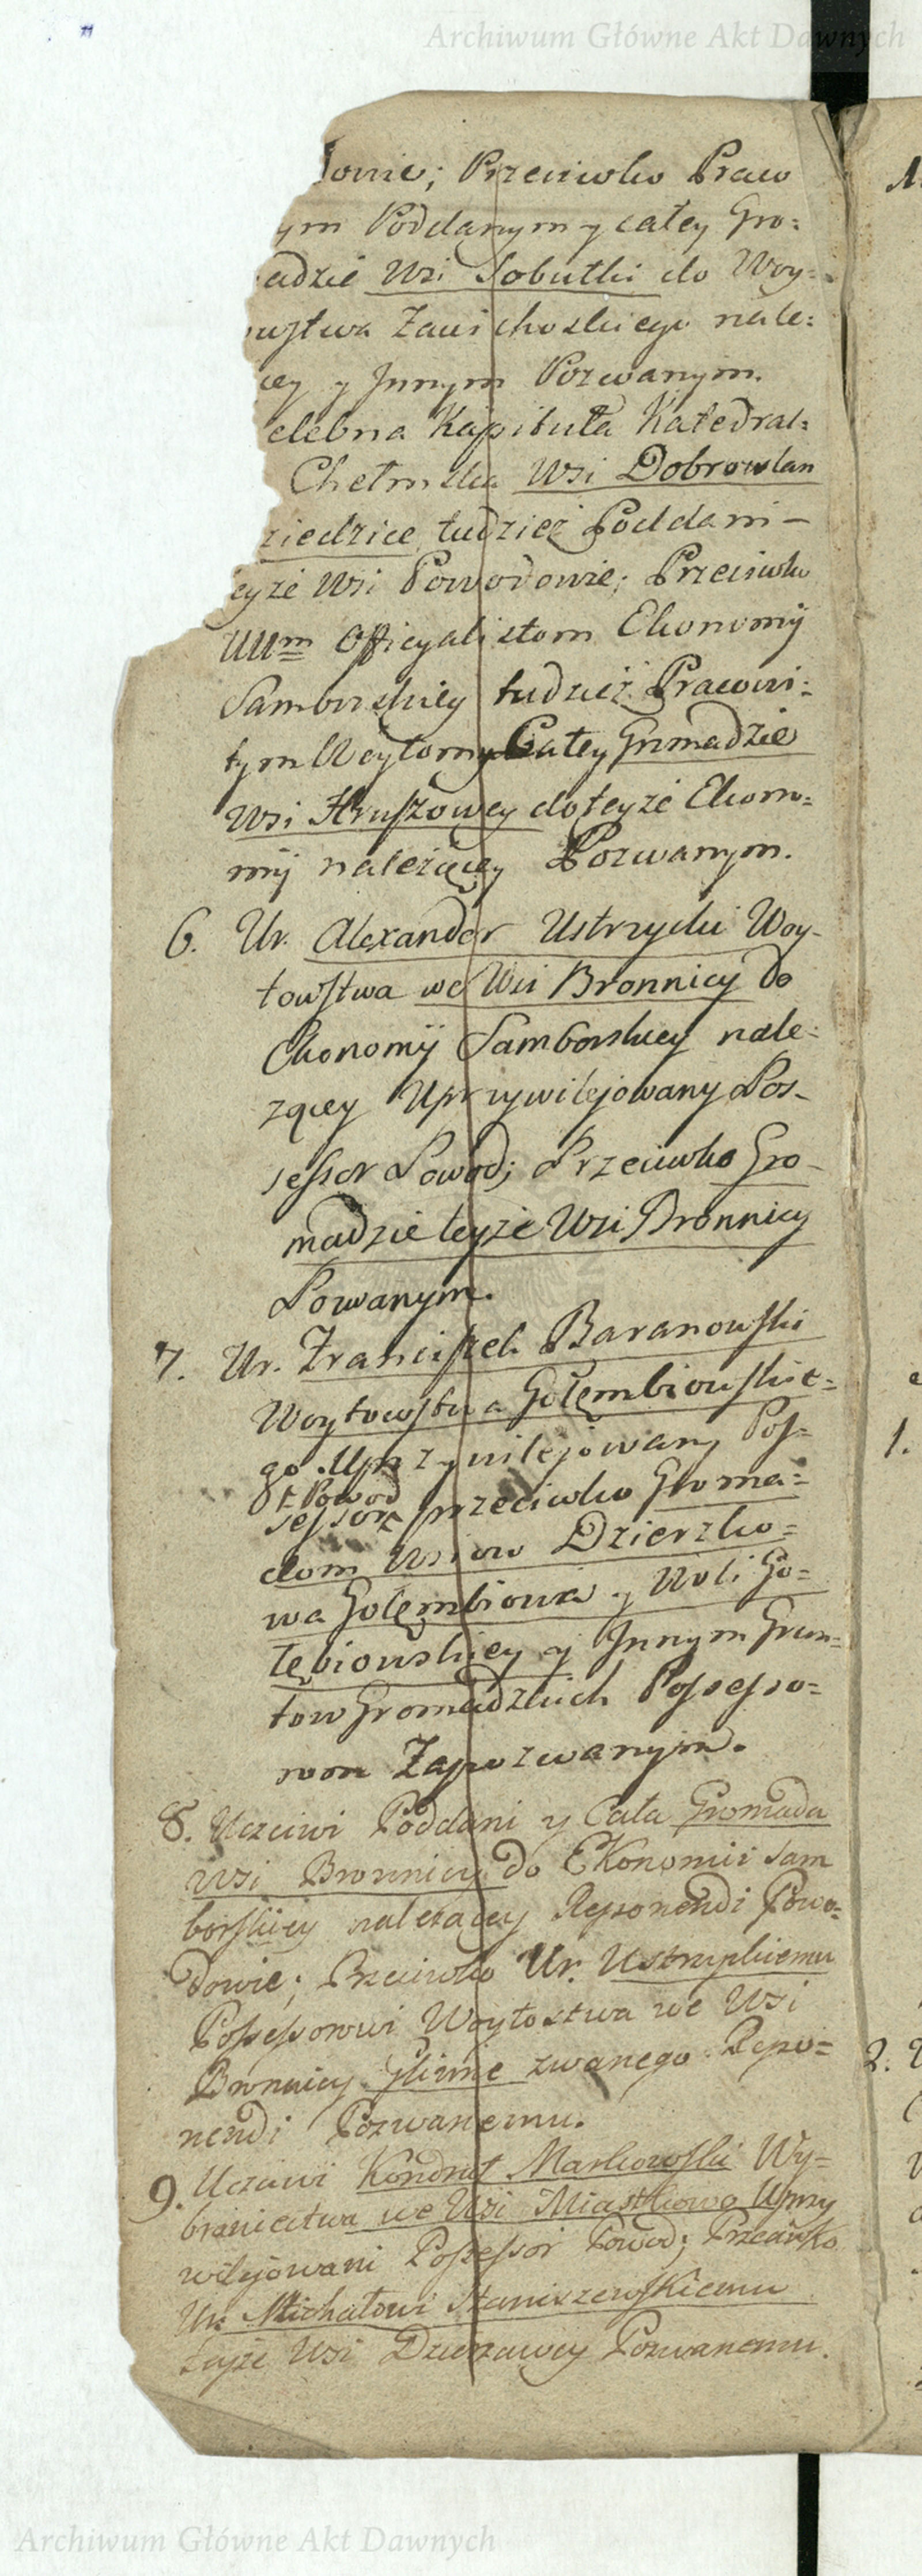 Archiwum Główne Akt Dawnych
downie; Przeciwko Praco
ym Poddanym y całey Gro:
adzie Wsi Sobutki do Woy:
wstwa Zawichoskiego nale:
cey y Jnnym Pozwanym.
elebna Kapituła Katedral:
Chełmska Wsi Dobrowlan
ziedzice, tudzież Poddani –
eyże Wsi Powodowie; Przeciwko
UUm Officyalistom Ekonomij
Samborskiey tudzież Pracowi:
tym Woytomy Całey Gromadzie
Wsi Hruszowey do teyże Ekono:
mij należącey Pozwanym.
6. Ur. Alexander Ustrzycki Woy-
towstwa we Wsi Bronnicy do
Ekonomij Samborskiey nale:
zącey Uprzywilejowany Pos-
sessor Powod; Przeciwko Gro-
madzie teyże Wsi Bronnicy
Powanym.
7. Ur. Franciszek Baranowski
Woytowstwa Gołembiowskie:
go Uprzywilejowany Pos-
t Powod
sessor przeciwko Groma:
dom Wsiow Dzierzko:
wa Gołembiowa y Woli Go:
łębiowskiey y Jnnym Grun:
tow Gromadzkich Possesso:
rom Zapozwanym.
8. Uczciwi Poddani y Cała Gromada
Wsi Bronnicy do Ekonomii Sam
borskiey należącey Reponendi Powo:
dowie; Przeciwko Ur. Ustrzyckiemu
Possessorowi Woytostwa we Wsi
Bronnicy Glinne zwanego Repo:
nendi Pozwanemu.
9. Uczciwi Kondrat Markowski Wy:
braniectwa we Wsi Miastkowo Uprzy
wilejowani Possessor Powod; Przeciwko
Ur. Michałowi Staniszewskiemu
teyże Wsi Dzierzawcy Pozwanemu.
1.
2.
Archiwum Główne Akt Dawnych